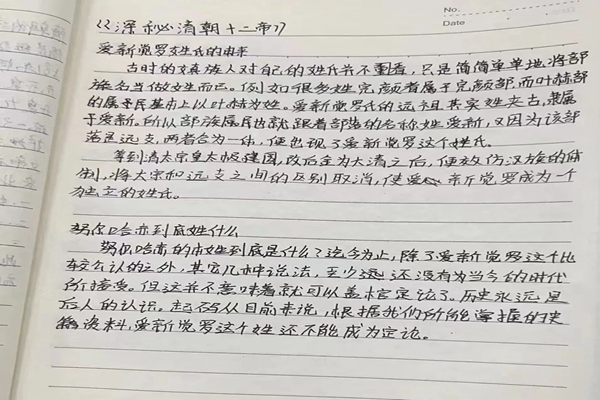 No.
Date
《深秘清朝十二帝》
爱新觉罗姓氏的由来
古时的女真族人对自己的姓氏并不重看，只是简简单单地将部
族名当做姓而已。例如很多姓完颜者属于完颜部，而叶赫部
的属民基本上以叶赫为姓。爱新觉罗氏的远祖其实姓夹古，隶属
于爱新，所以部族属民也就跟着部落的名称姓爱新，又因为该部
落是远支，两者合为一体，便出现了爱新觉罗这个姓氏。
等到清太宗皇太极建国，改后金为大清之后，便效仿汉族的体
制，将大宗和远支之间的区别取消，使爱新觉罗成为一个
独立的姓氏。
努尔哈赤到底姓什么
努尔哈赤的本姓到底是什么？迄今为止，除了爱新觉罗这个比
较公认的之外，其它几种说法，至少还没有为当今的时代
所接受。但这并不意味着就可以盖棺定论了。历史永远是
后人的认识。起码从目前来说，根据我们所能掌握的史
资料，爱新觉罗这个姓还不能成为定论。